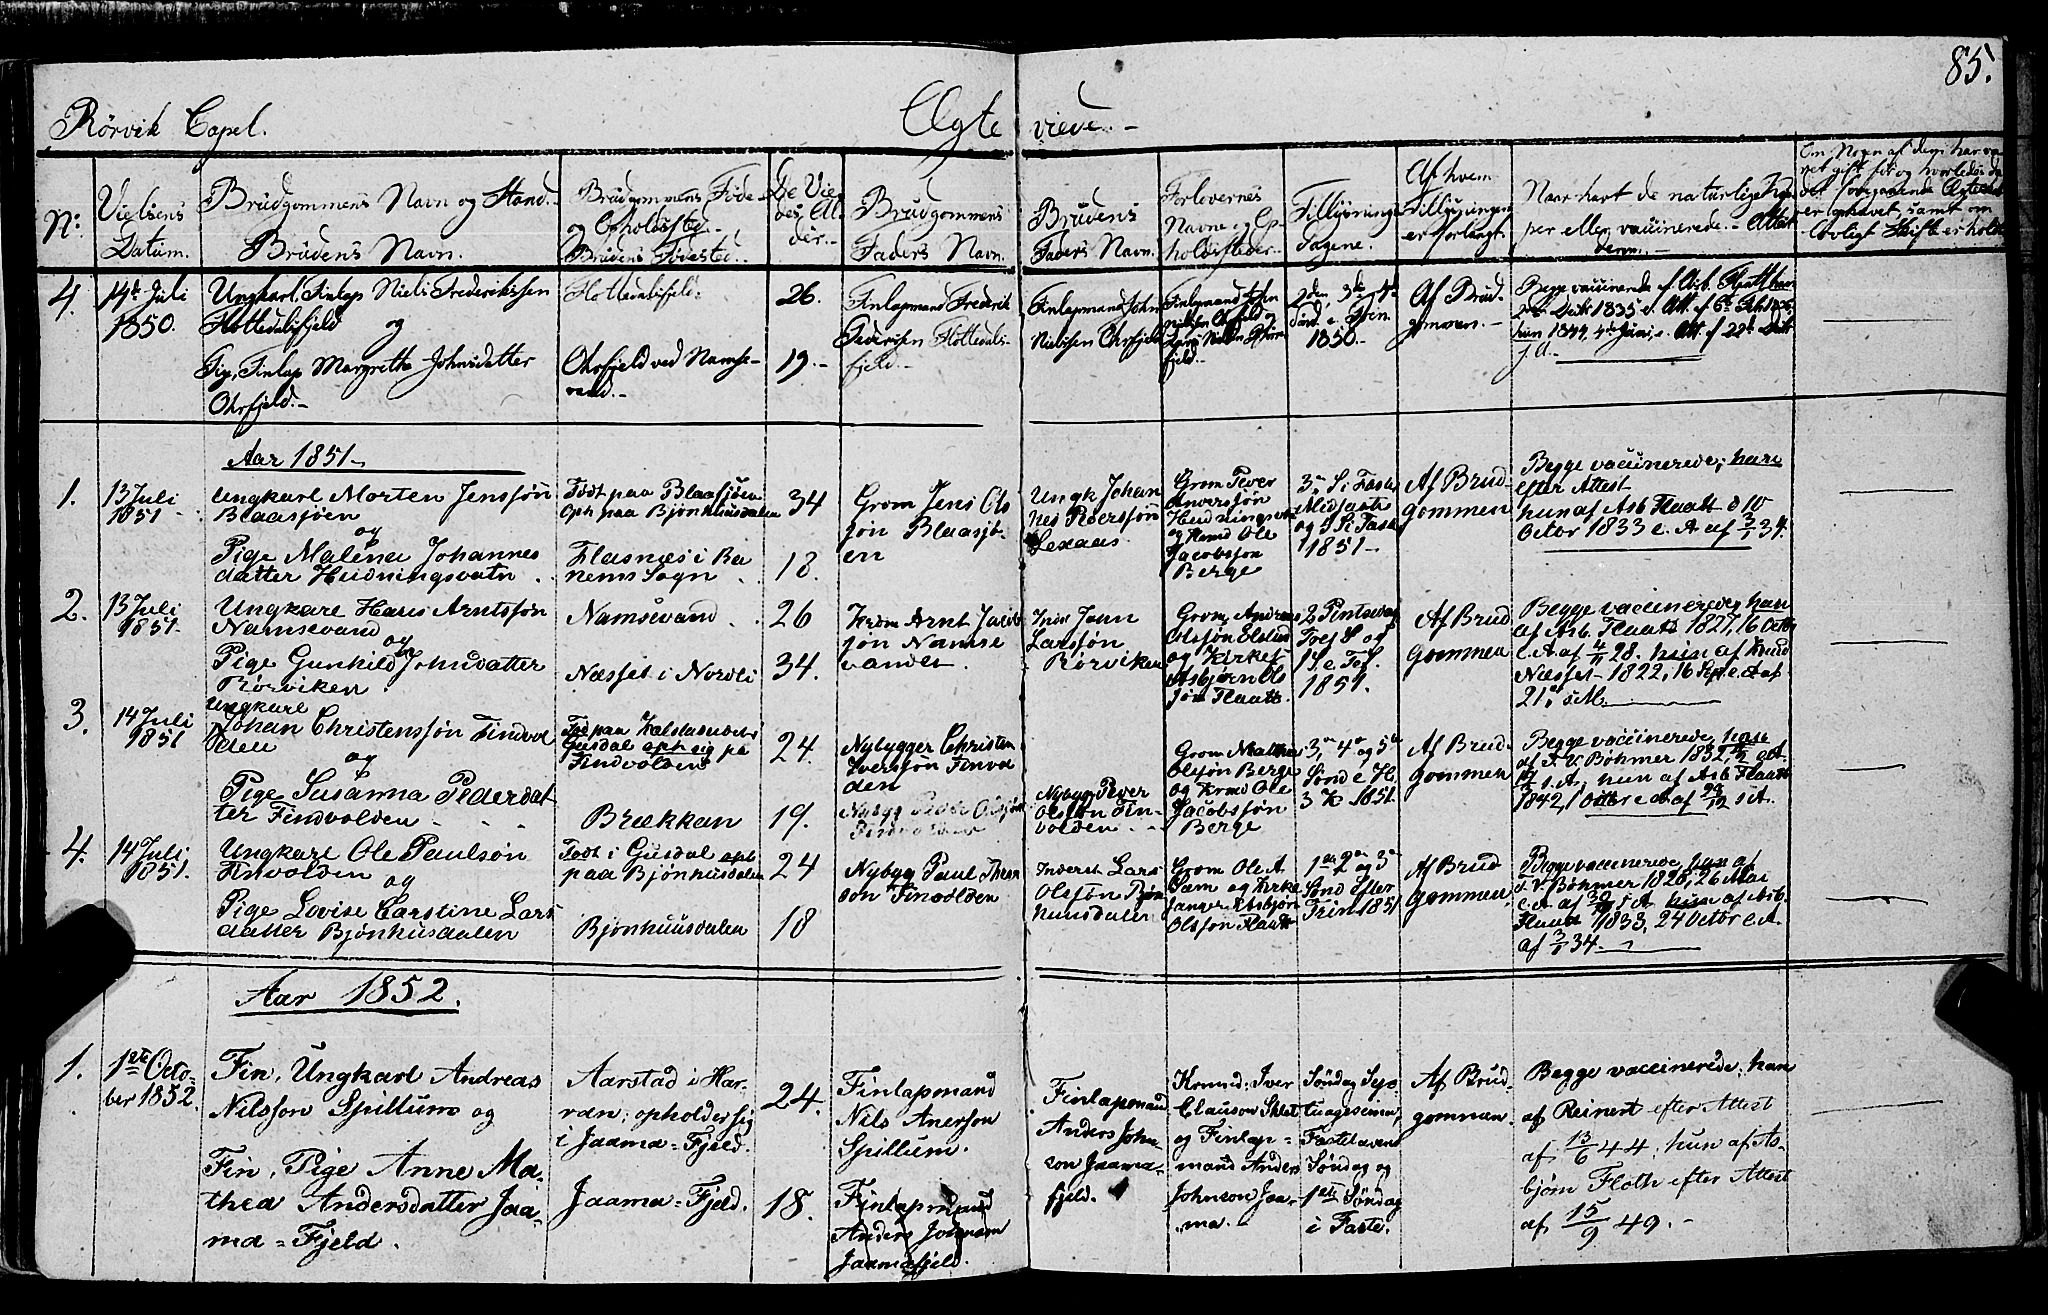 85.
Rörvik Capel.
Ægte viede. -
No:
Vielsens
Datum.
Brudgommens Navn og Stand.
Brudens Navn.
Brudgommens Föde-
og Opholdssted.
Brudens Födested.
De Vie-
des Al-
der.
Brudgommens
Faders Navn.
Brudens
Faders Navn.
Forlovernes
Navne og Op-
holdssteder.
Tillysnings
Dagene.
Af hvem
Tillysningen
er forlangt.
Naar havt de naturlige Kop-
per eller vaccinerede. - Attest
derom.
Om Nogen af dem har væ-
ret gift för og hvorledes da
det foregaaende Ægteskab
er ophævet, samt om
lovligt Skifte er holdt
4.
14de Juli
1850.
Ungkarl, Finlap Niels Frederikssen
Hottedalsfjeld
og
Pige, Finlap Margrethe Johnsdatter
Ohrfjeld.
Hottedalsfjeld
Ohrfjeld ved Namse-
vand.
26.
19.
Finlapmand Frederik
Pedersen Hottedals-
fjeld.
Finlapmand John
Nielsen Ohrfjeld
Finlapmand
fjeld.
2den 3die 4de
Sönd. e. Trin.
1850.
Af Brud-
gommen.
Begge vaccinerede af Asb. Flaatt han
1835 e. Att. af 6te
hun 1844, 4de Juni, e. Att. af 22de
s. A.
Aar 1851
1.
13 Juli
1851
Ungkarl Morten Jenssøn
Blaasjøen
og
Pige Malena Johannes
datter Heidningsvatn
Født paa Blaasjøen
Oph paa Bjønhuusdalen
Flasnæs i Ra
nems Sogn
34
18.
Grom Jens Ols
søn Blaasjø-
en
Ungk Johan
nes Pedersøn
Lexaas
Grom Peder
Andersøn
Heidningsvatn
og Kemd Ole
Jacobsøn
Berge
3. S. i Faste
Midfaste
og 5 S. i Faste
1851
Af Brud-
gommen
Begge vaccinerede, han
efter Attest
hun af Asb Flaatt d 10
Octor 1833 e. A af 3/1 34.
2.
13 Juli
1851.
Ungkarl Hans Arntsøn
Namsevand
og
Pige Gunhild Johnsdatter
Rörviken
Namsevand
Næsset i Nordli
26
34.
Arnt Jacob
søn Namse
vandet
John
Larssøn
Rørviken
Grom Andreas
Olssøn Elslid
og Kirkes.
Asbjørn Ols
søn Flaatt
2 Pintsedag
Tref S. og
1 S. e. Tref.
1851.
Af Brud
gommen
Begge vaccinerede, han
af Asb. Flaatt 1827, 16 Octbr
e. A af 4/11 28. hun af Knud
Næsset 1822, 16 Sept. e. A af
21. s. M.
3.
14 Juli
1851
Ungkarl
Johan Christenssøn Tindvol
den
og
Pige Susanna Pederdat
ter Tindvolden
Fød paa
Gusdal oph sig paa
Tindvolden
Brækkan
24.
19.
Nybygger Christen
Iverssøn Tinvol
den
Nybyg Peder Olssøn
Tindvolden
Nybygg Peder
Olssøn Tin-
volden
Grom Matthias
Olssøn Berge
og Kemd Ole
Jacobssøn
Berge
3. 4. og 5te
Sønd e. H.
3 K. 1851.
Af Brud-
gommen
Begge vaccinerede, han
af F. V. Bøhmer 1832,
s. A., hun af Asb Flaatt
1842, 1 Octbr e. A af 29/12 s. A.
4.
14 Juli
1851.
Ungkarl Ole Paulsøn
Tinvolden
og
Pige Lovise Carstine Lars
datter Bjönhusdalen
Født i Gusdal oph
paa Bjönhusdalen
Bjønhuusdalen
24
18
Nybyg Paul
søn Tinvolden
Inderst Lars
Olssøn Bjøn
huusdalen
Grom Ole A.
og Kirke
sanger Asbjørn
Olssøn Flaatt
1. 2. og 3.
Sønd Efter
Trin. 1851
Af Brud
gommen
Begge vaccinerede, han af
F. V. Bøhmer 1828, 26 Mai
s. A. hun af Asb.
Flaatt 1833, 24 Octbr e. A.
af 3/1 34.
Aar 1852.
1.
1ste Octo-
ber 1852.
Fin, Ungkarl Andreas
Nilsson Spillum og
Fin, Pige Anne Ma-
thea Andersdatter Jaa-
ma=Fjeld.
Aarstad i Har-
ran; opholder sig
i Jaama=Fjeld.
Jaama=Fjeld.
24.
18.
Finlapmand
Nils Anerson
Spillum.
Finlapmand
Anders Johnson
Jaamafjeld.
Finlapmand
Anders John-
son Jaama-
fjeld.
Kemnd. Iver
Clauson Sklet
og Finlap=
mand Anders
Johnson Jaa-
ma.
Søndag
Fastelavens
Søndag og
1ste Søndag
i Faste.
Af Brud-
gommen.
Begge vaccinerede; han
af Reinert efter Attest
af 13/6 44; hun af As-
bjørn Floth efter Attest
af 15/9 49. -